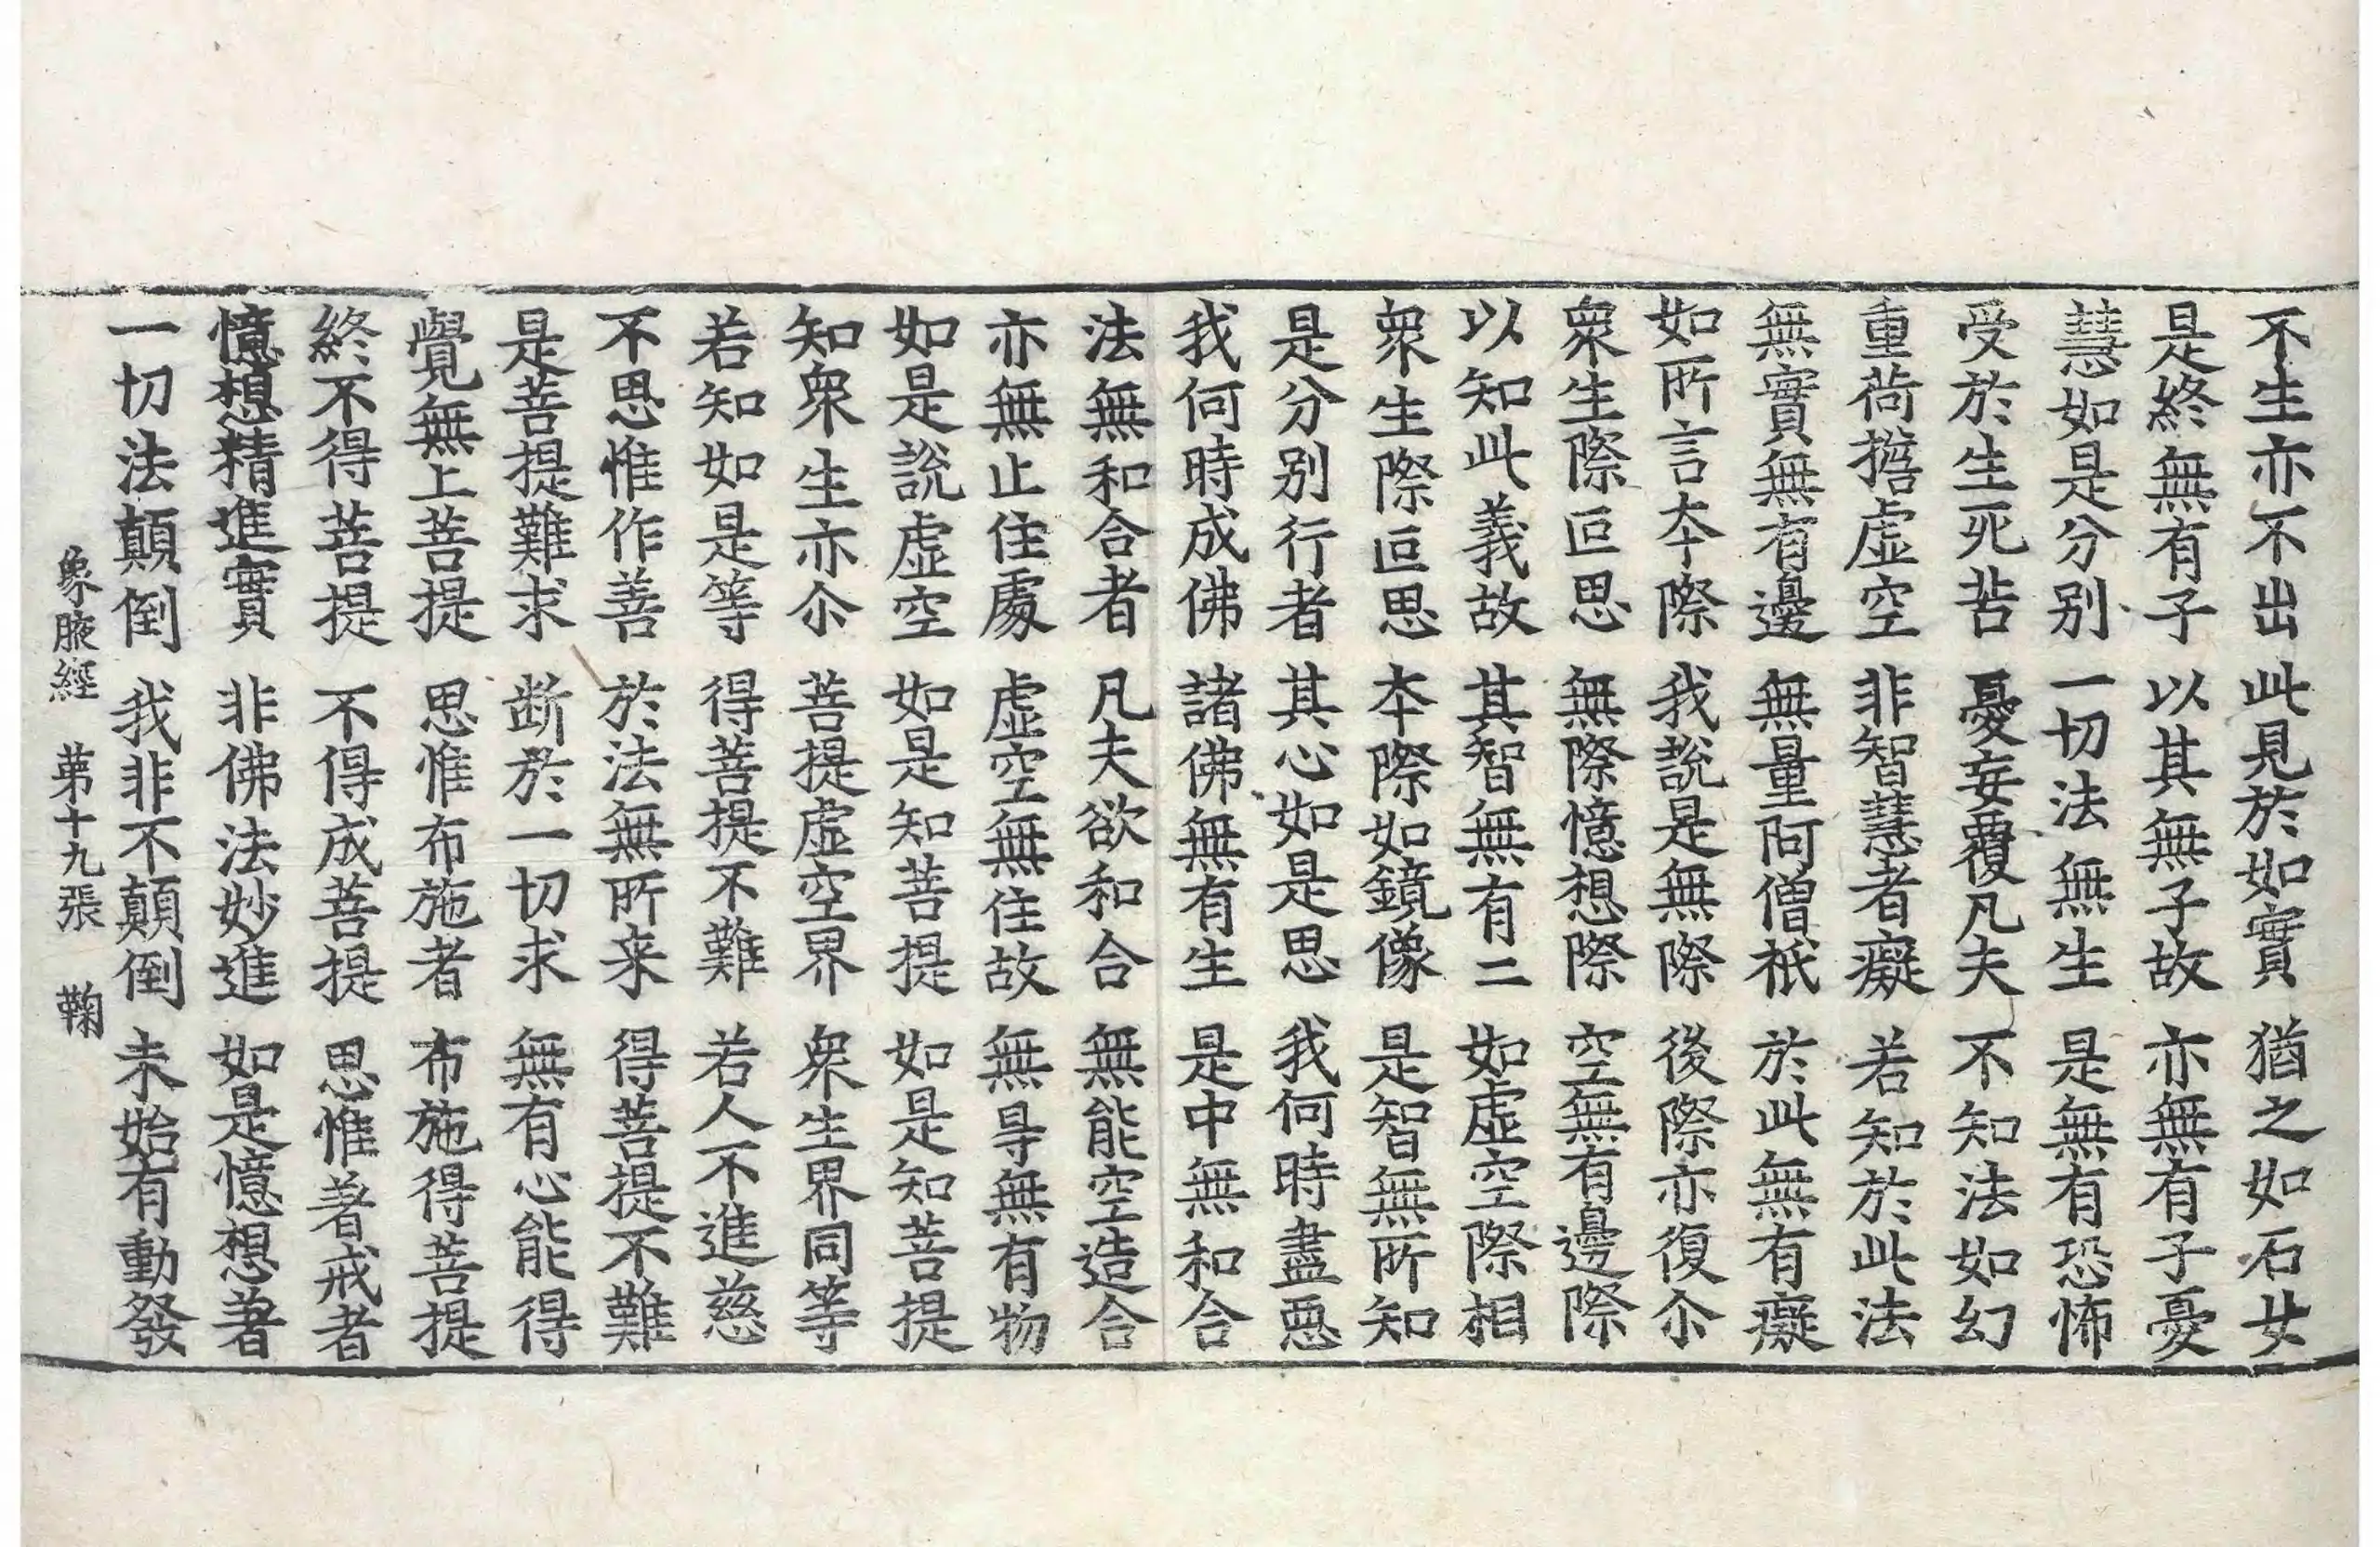 不生亦不出 此見於如實 猶之如石女
是終無有子 以其無子故 亦無有子憂
慧如是分別 一切法無生 是無有恐怖
受於生死苦 憂妄覆凡夫 不知法如幻
重荷擔虛空 非智慧者癡 若知於此法
無實無有邊 無量阿僧祇 於此無有癡
如所言夲際 我說是無際 後際亦復尒
衆生際叵思 無際憶想際 空無有邊際
以知此義故 其智無有二 如虛空際相
衆生際叵思 夲際如鏡像 是智無所知
是分別行者 其心如是思 我何時盡惡
我何時成佛 諸佛無有生 是中無和合
法無和合者 凡夫欲和合 無能空造合
亦無止住處 虛空無住故 無㝵無有物
如是說虛空 如是知菩提 如是知菩提
知衆生亦尒 菩提虛空界 衆生界同等
若知如是等 得菩提不難 若人不進慈
不思惟作善 於法無所来 得菩提不難
是菩提難求 断於一切求 無有心能得
覺無上菩提 思惟布施者 布施得菩提
終不得菩提 不得成菩提 思惟著戒者
憶想精進實 非佛法妙進 如是憶想著
一切法顛倒 我非不顛倒 未始有動發
象腋經 第十九張 鞠